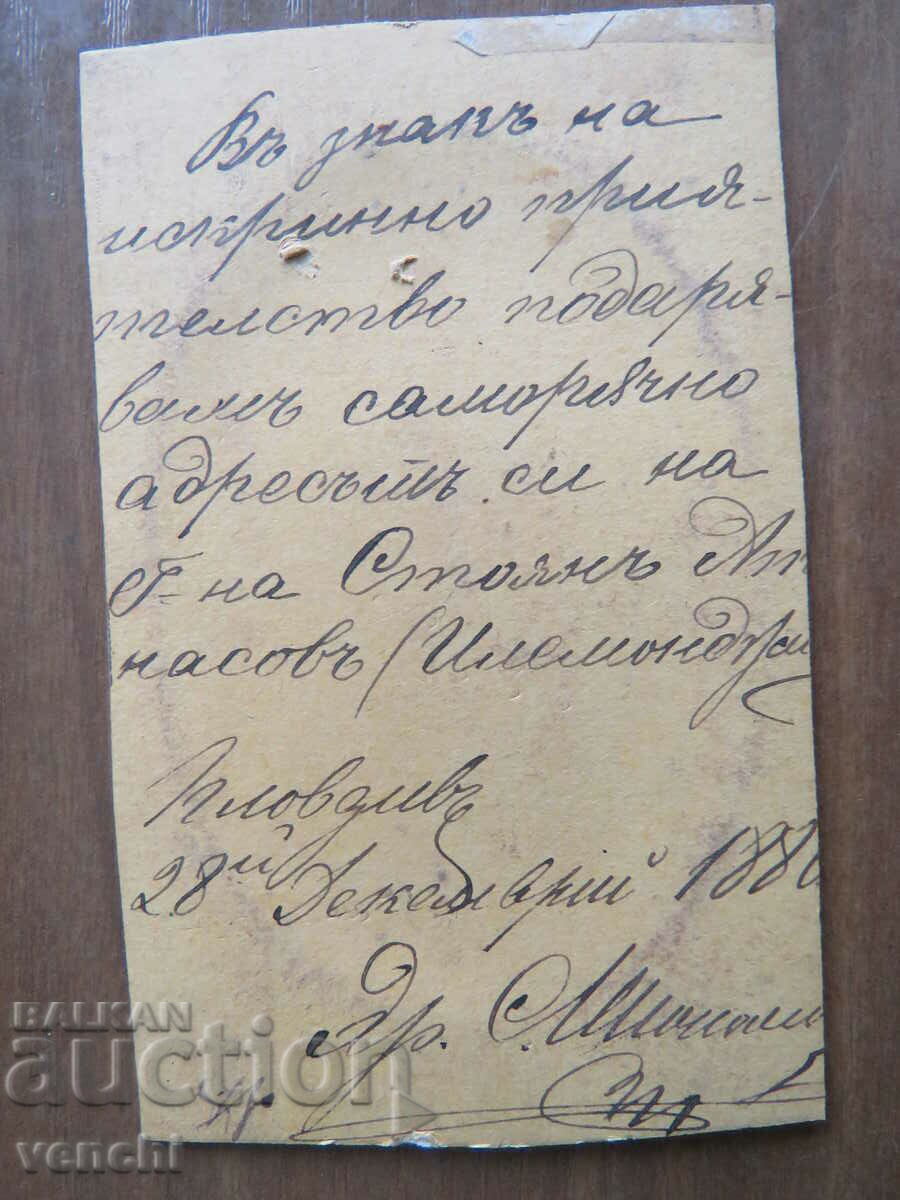 Въ знакъ на
искринно прия-
телство подаря-
вамъ саморѫчно
адресътъ си на
Г-на Стоянъ Ат
насовъ (Илемондж
Пловдивъ
28й Декемврій 188
Др. С.
BALKAN
auction
venchi